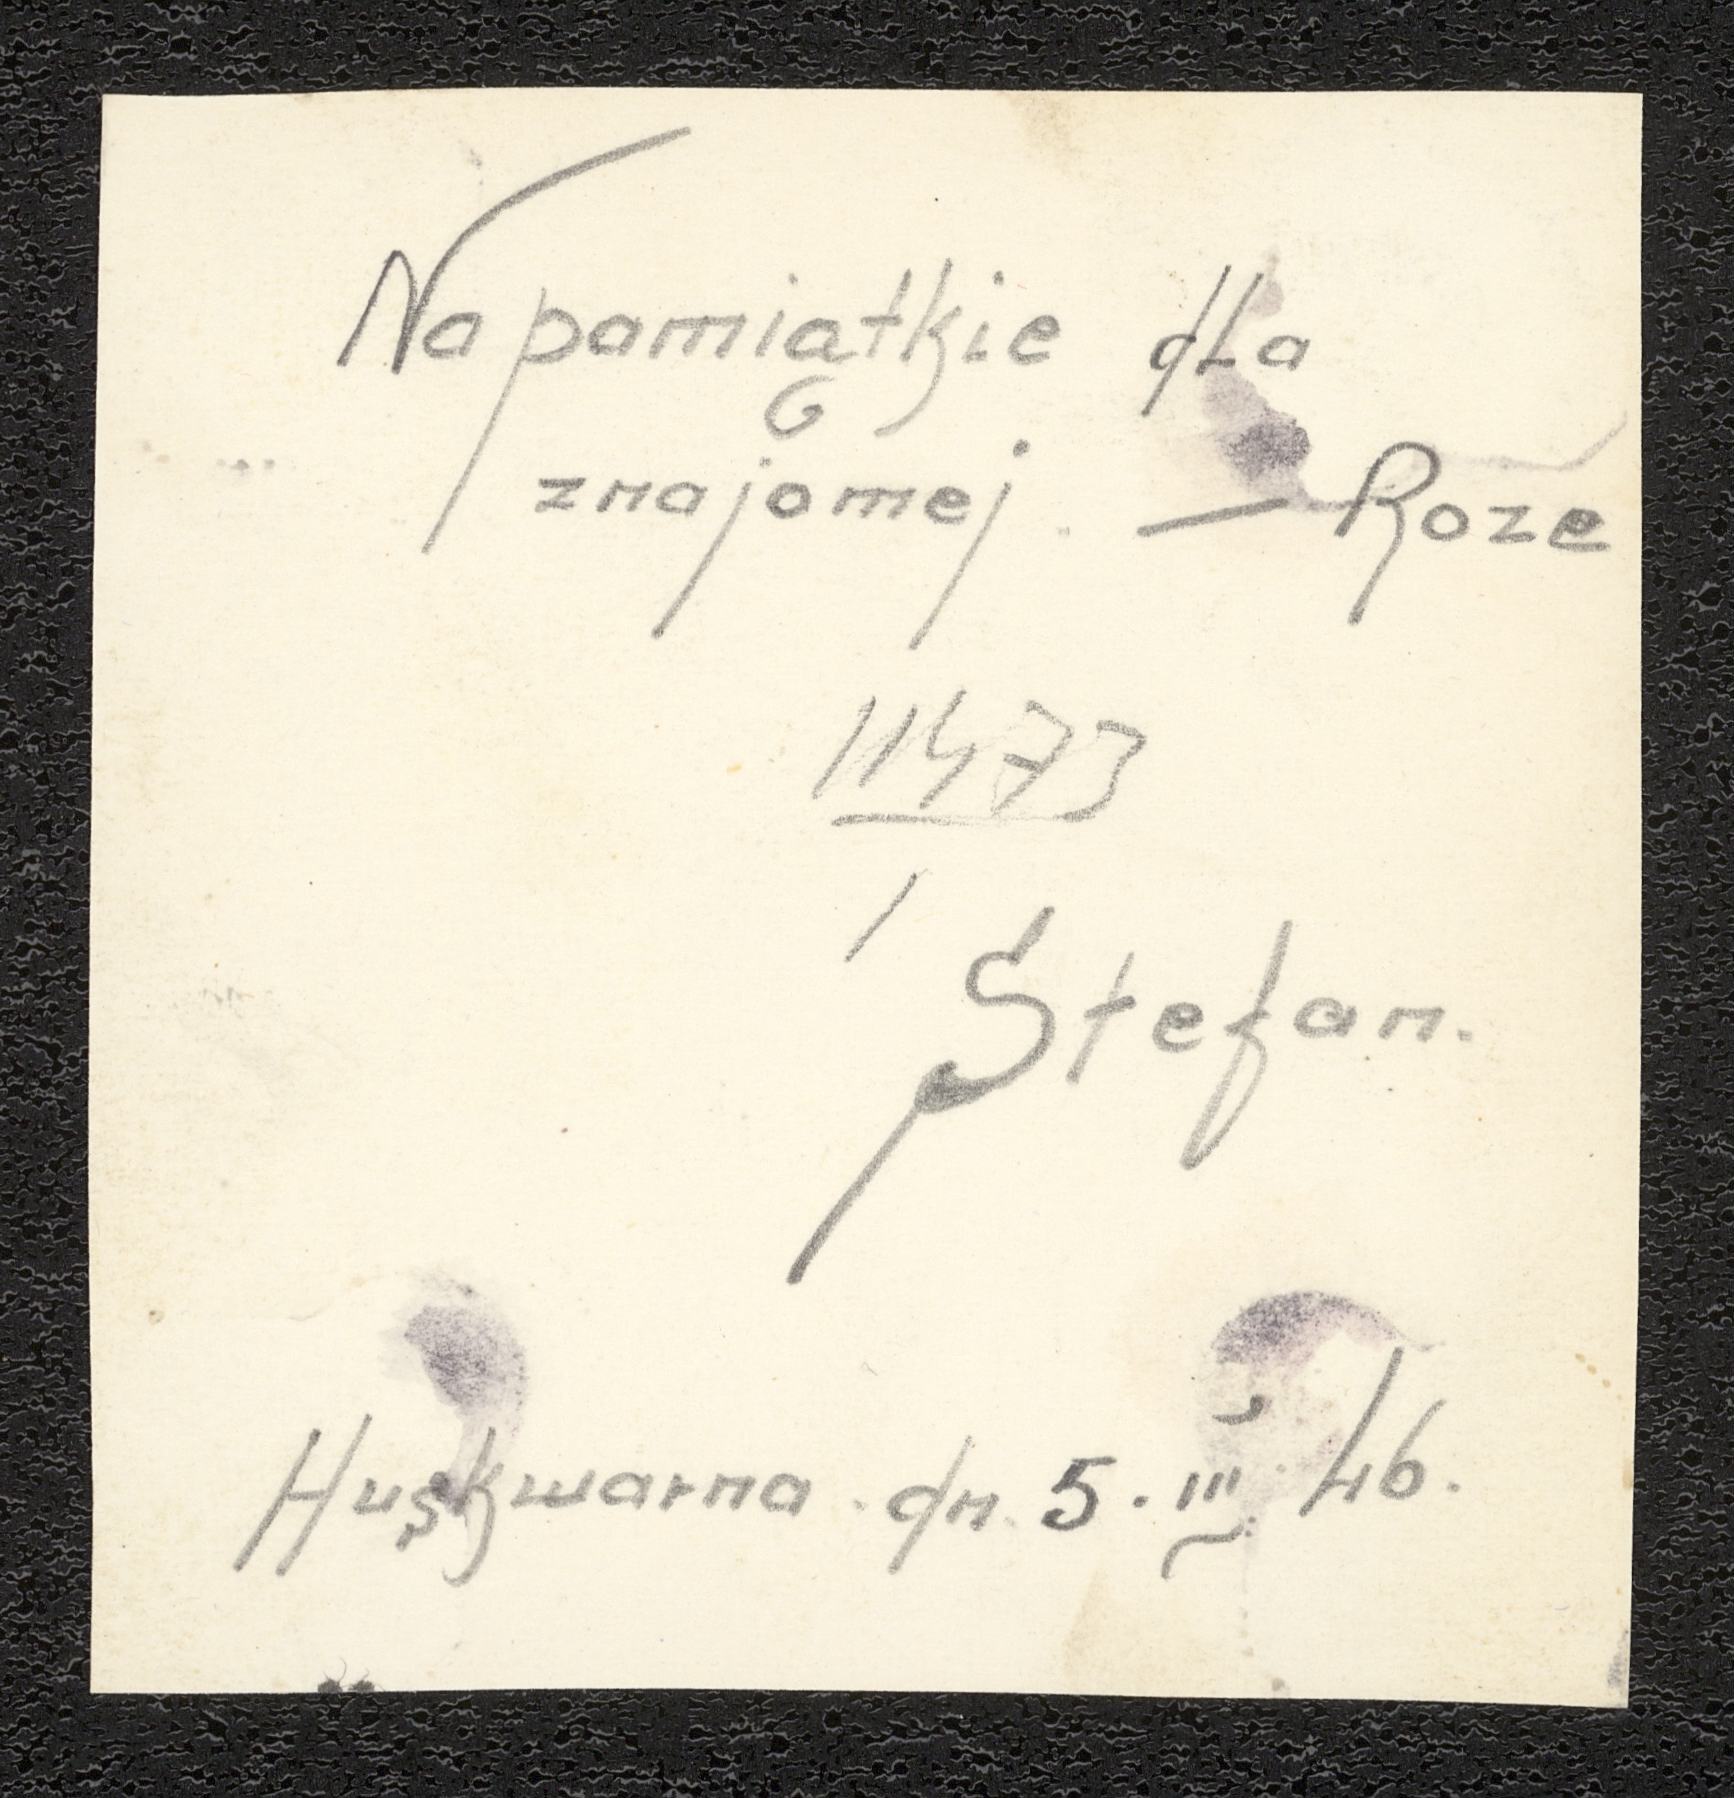 Na pamiątkie dla
znajomej. — Roze
11473
Stefan.
Huskwarna. dn. 5. III. 46.